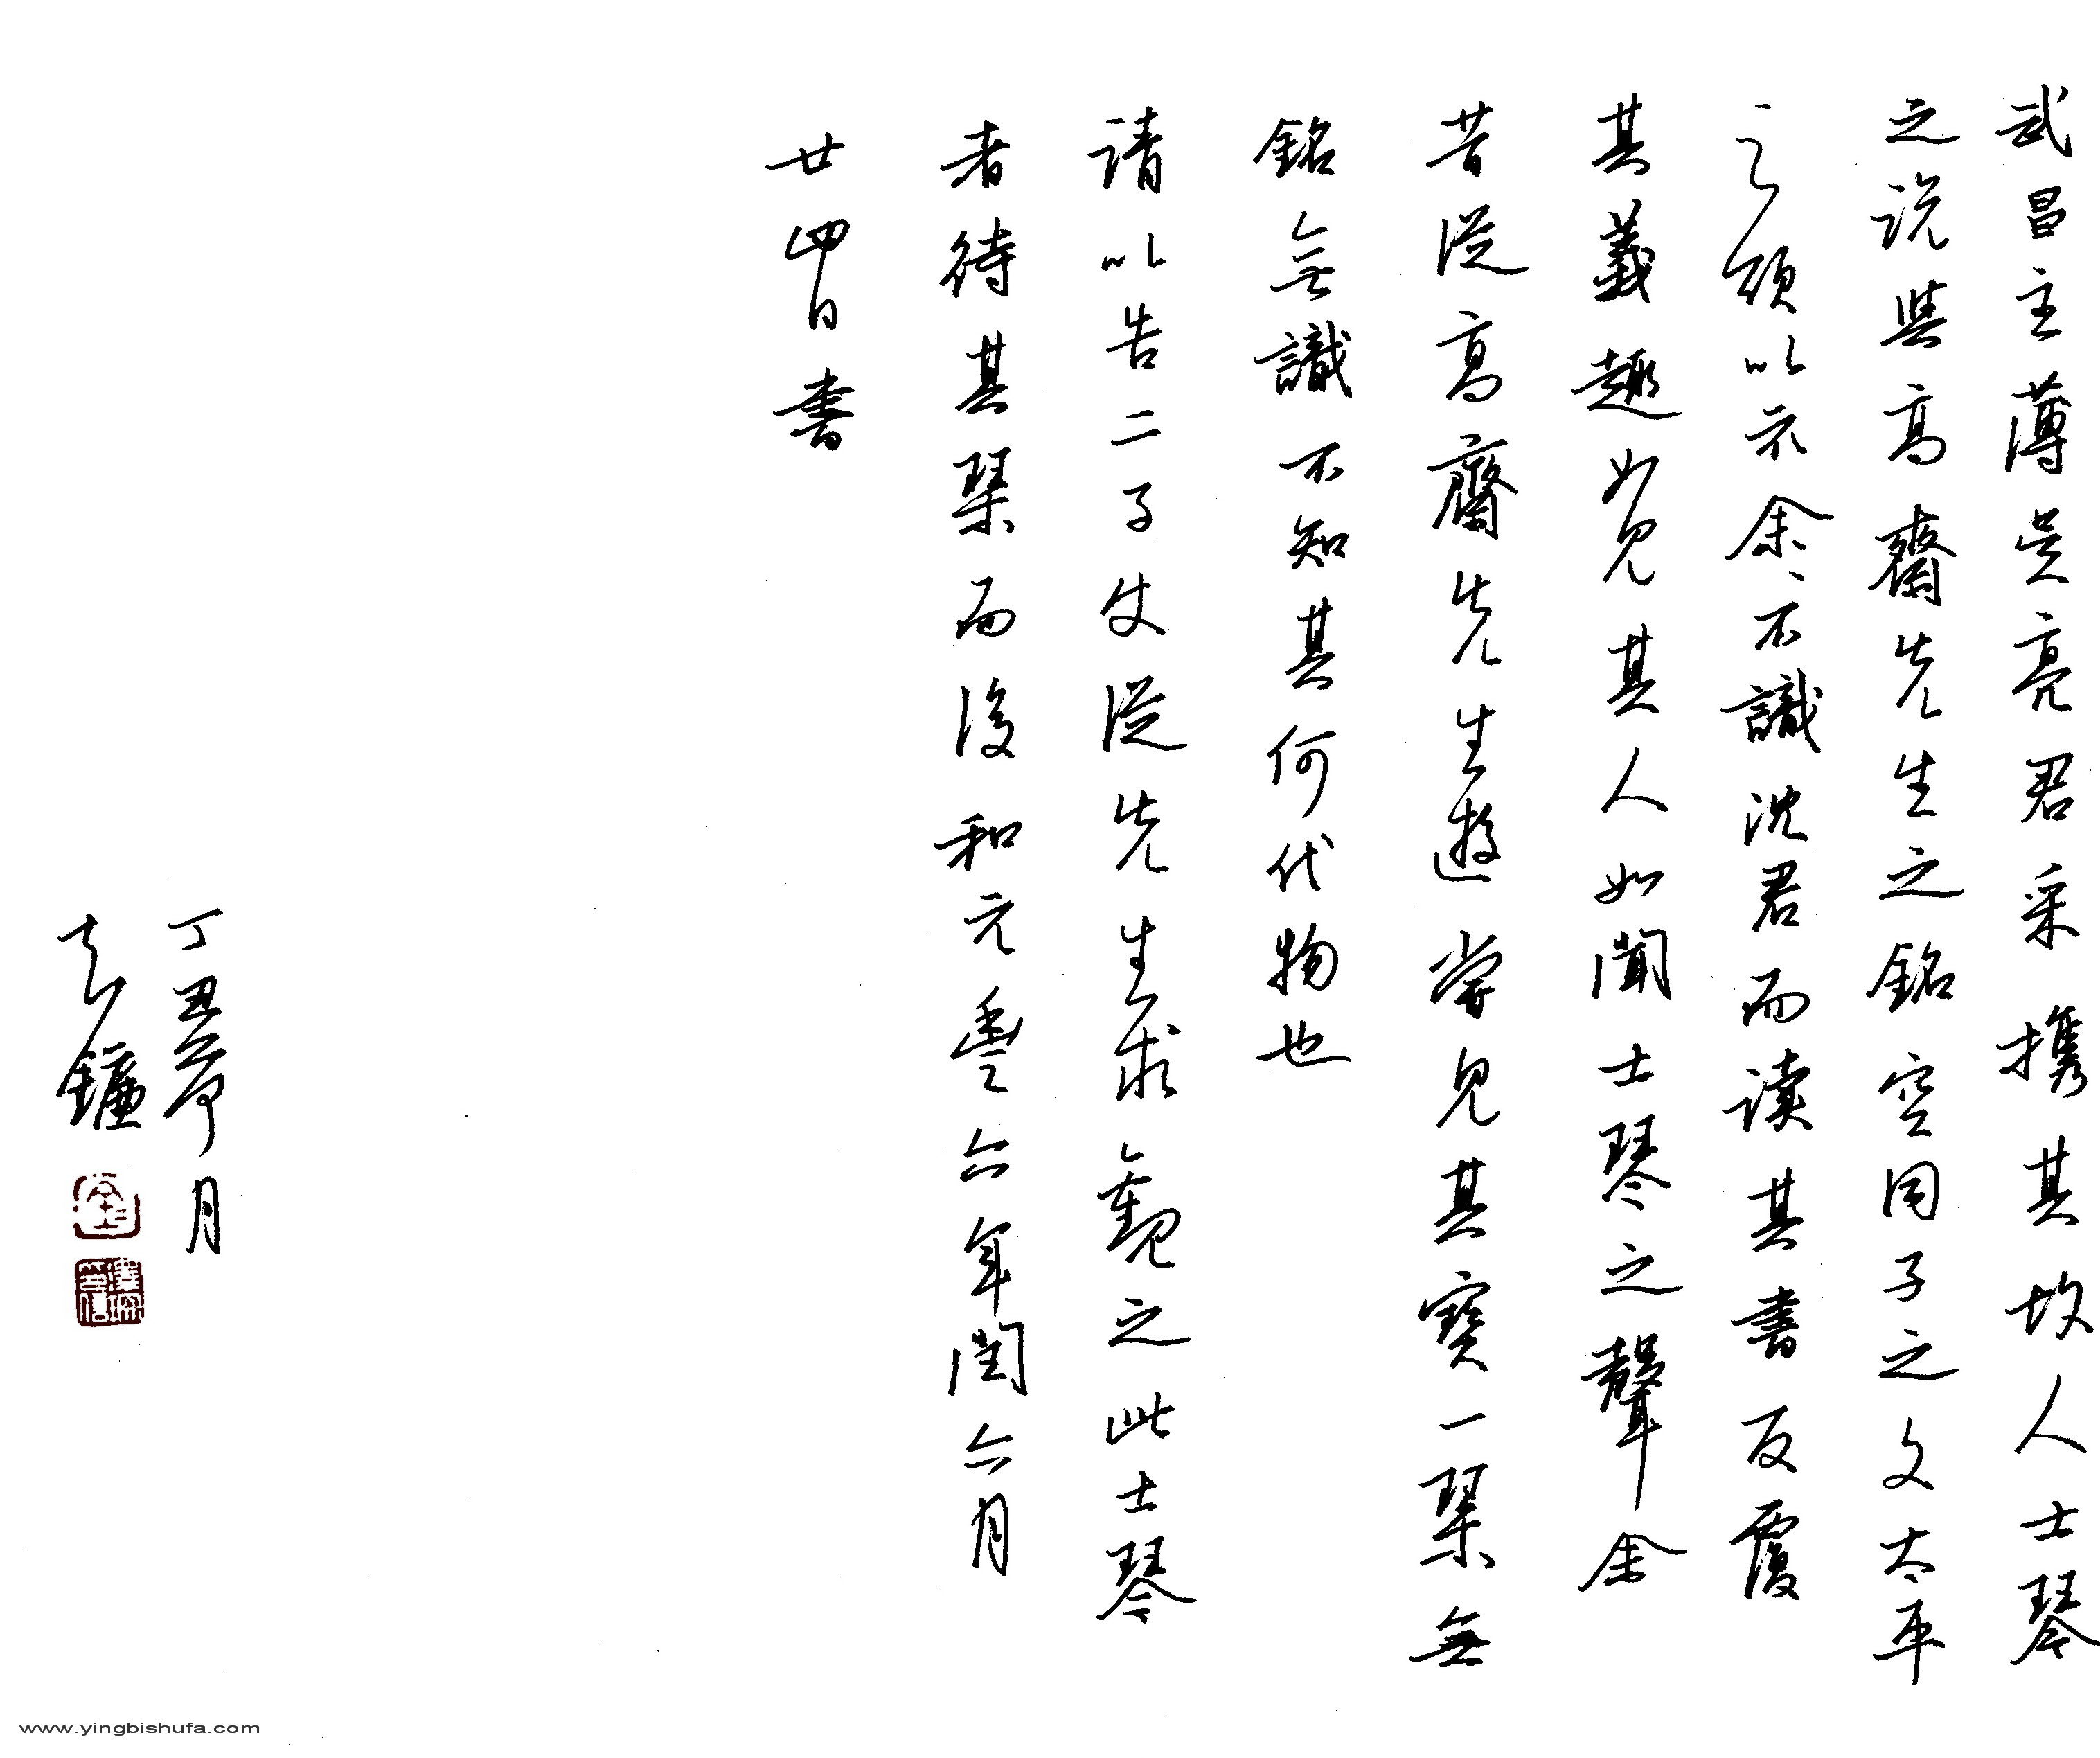 武昌主薄吴亮君采攜其故人士琴
之说與高齋先生之銘空同子之文太平
之頌以示余余不識沈君而读其書反覆
其義趣如見其人如聞士琴之聲余
昔從高齋先生遊嘗見其寶一琹無
銘無識不知其何代物也
请以告二子使從先生求觀之此士琴
者待其琹而後和元豐六年閏六月
廿四日書
丁丑年六月
www.yingbishufa.com